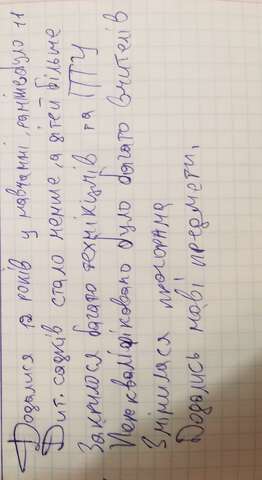 Додалися 12 років у навчанні, раніше було 11
Дит. садків стало менше, а дітей більше
Закрилося багато технікумів та ПТУ
Перекваліфіковано було багато вчителів
Змінилася програма
Додались нові предмети.